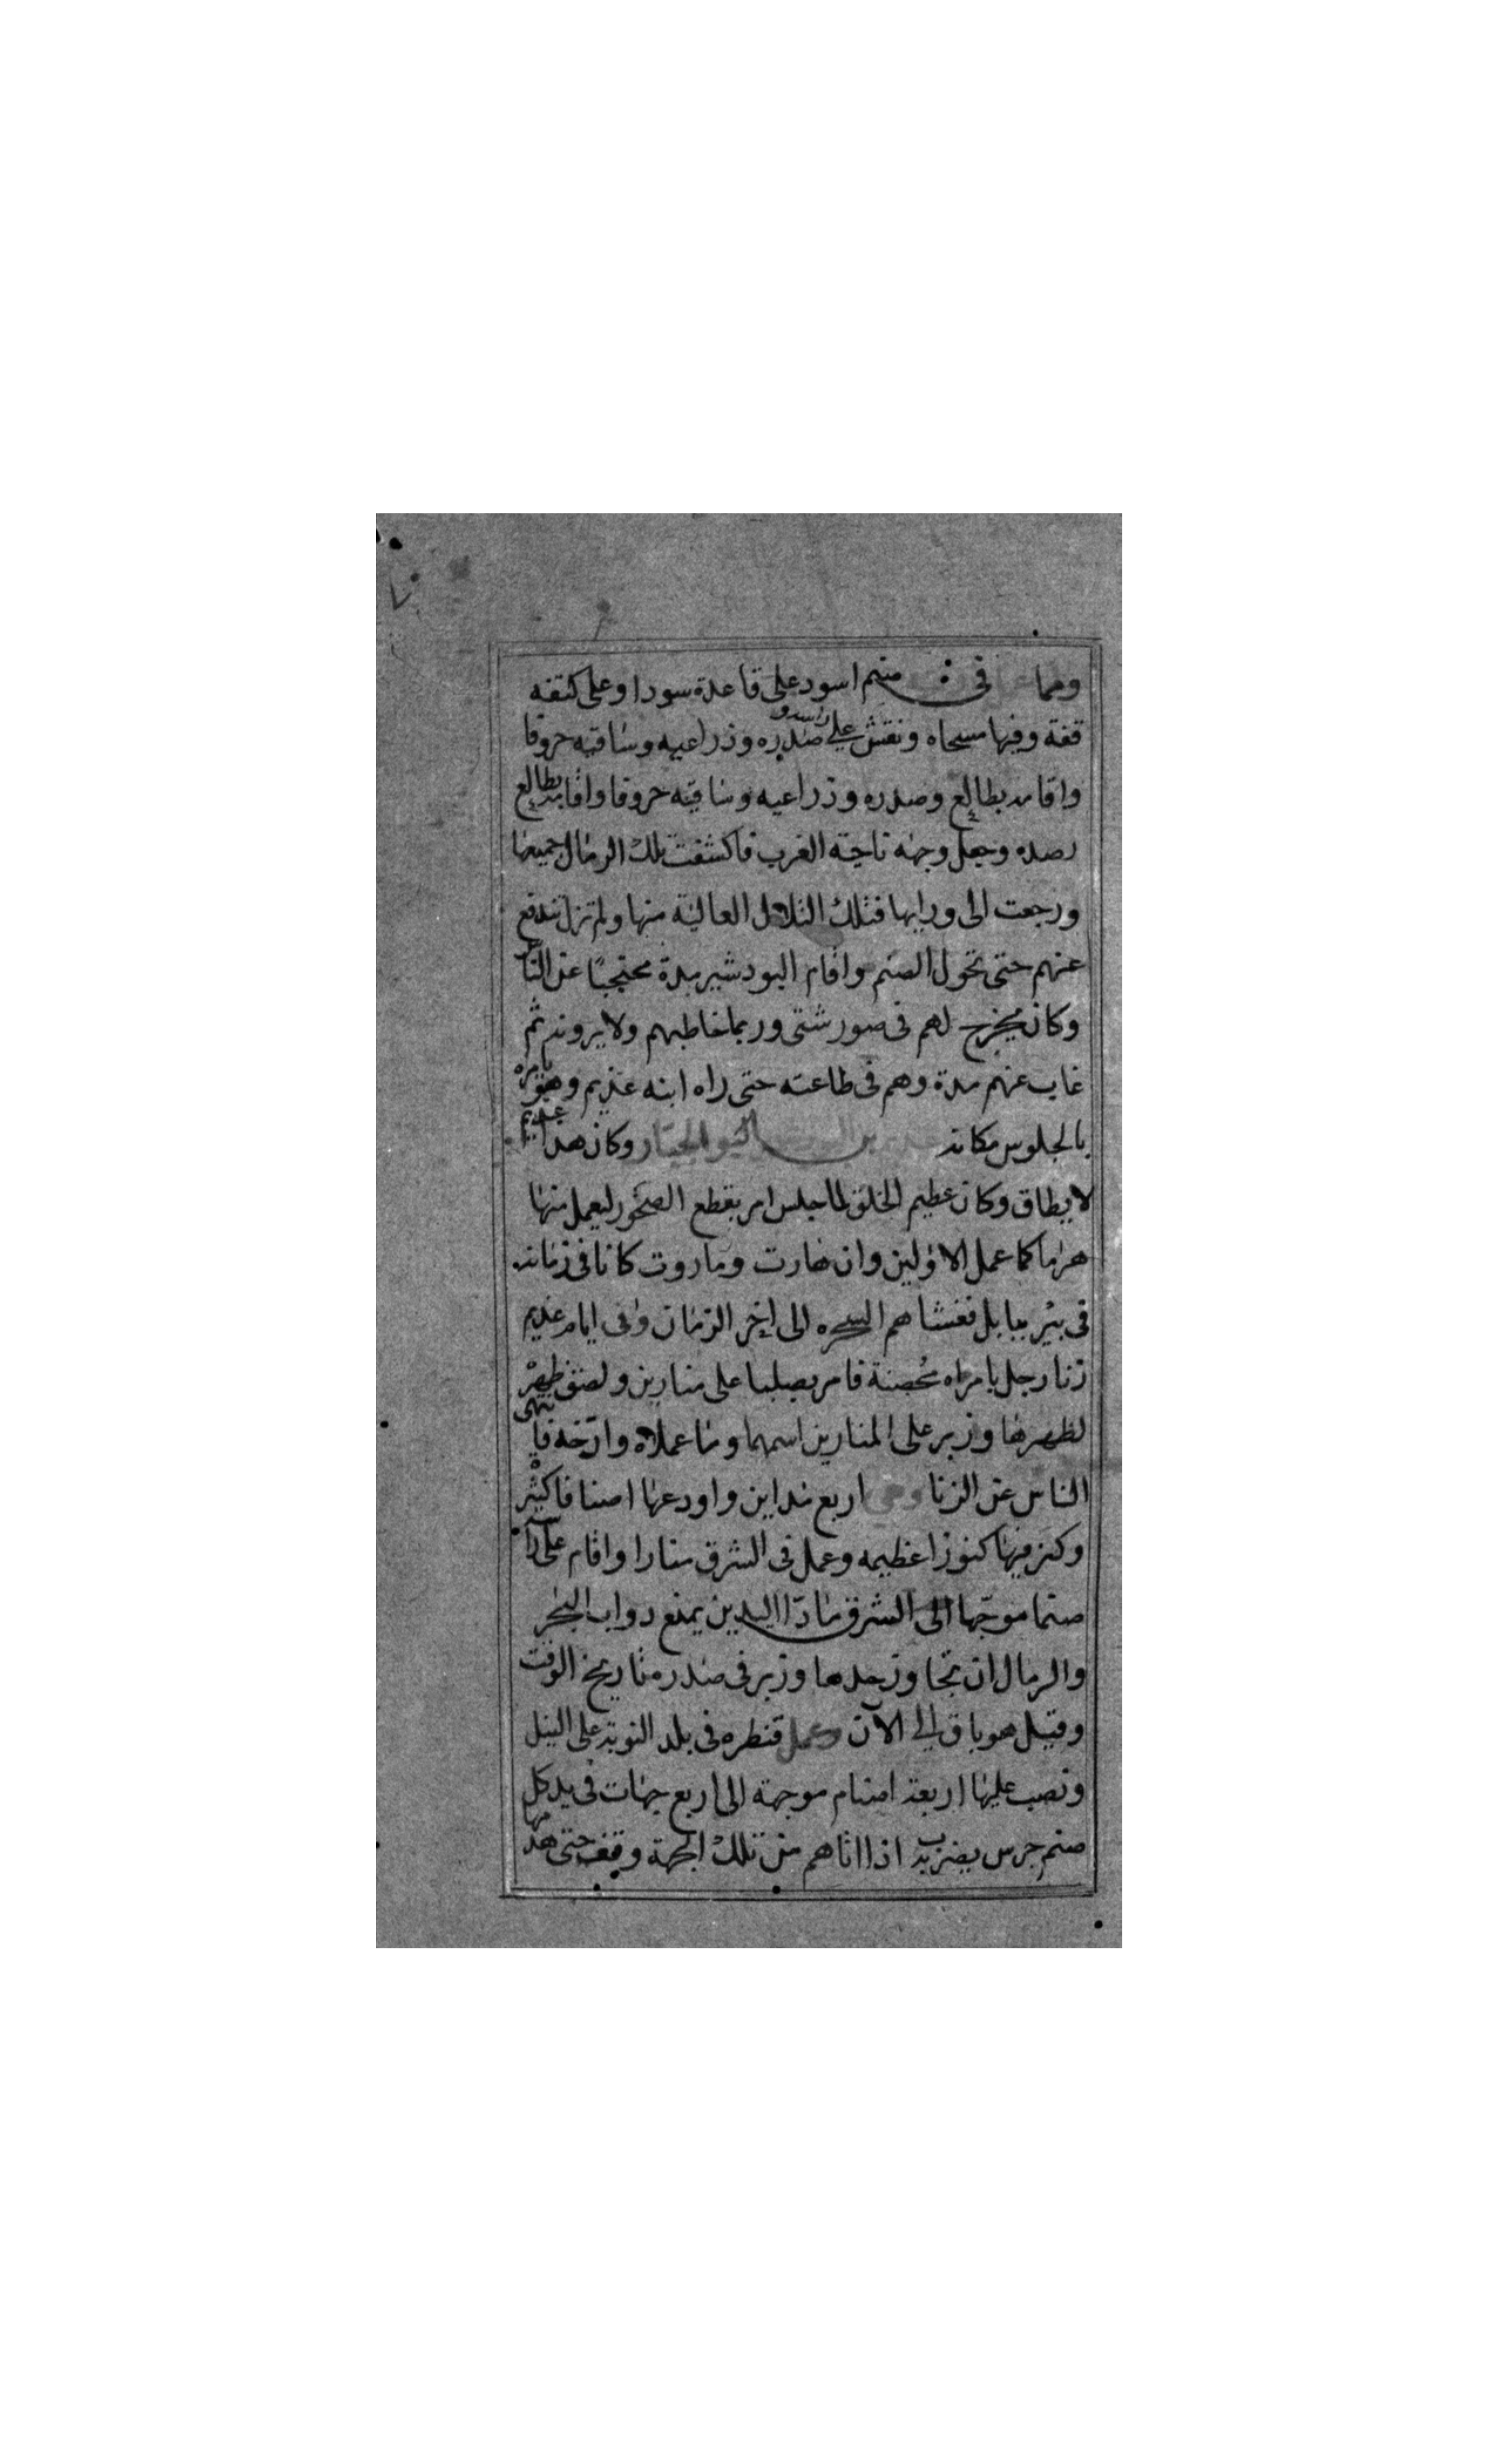 ومما في صنم اسود على قاعدة سودا وعلى كتفه
قفة وفيها مسحاه ونقش على راسه و صدره وذراعيه وساقيه حروفا
واقامه بطالع وصدره وذراعيه وساقيه حروفا واقامه بطالع
رصده وجعل وجهه ناحية الغرب فاكشفت تلك الرمال جميعها
ورجعت الى ورايها فتلك التلال العالية منها ولم تزل تندفع
عنهم حتى تحول الصنم واقام البودشير مدة محتجبًا عن الناس
وكان يخرج لهم في صور شتى وربما خاطبهم ولا يرونه ثم
غاب عنهم مدة وهم في طاعته حتى راه ابنه عديم وهو يامره
بالجلوس مكانه عديم بن البودشير الجبّار وكان هذا عديم
لا يطاق وكان عظيم الخلق لما جلس امر بقطع الصخور ليعمل منها
هرما كما عمل الاولين وان هارت وماروت كانا في زمانه
في بير ببابل فغشاهم السحره الى اخر الزمان وفى ايام عديم
زنا رجل بامراه محُصنة فامر بصلبا على منارين ولصق ظهره
لظهرها وزبر على المنارين اسمهما وما عملاه وارّخه فانتهى
الناس عن الزنا وهي اربع مداين واودعها اصنافا كثير
وكنز فيها كنوزا عظيمه وعمل في الشرق منارا واقام على راسه
صنما موجّها الى الشرق مادّا اليدين يمنع دواب البحر
والرمال ان تجاوز حدها وزبر في صدره تاريخ الوقت
وقيل هو باق الي الآن وعمل قنطره في بلد النوبة على النيل
ونصب عليها اربعة اصنام موجهة الى اربع جهات في يد كل
صنم جرس يضرب به اذا اتاهم من تلك الجهة وقف حتى هدمها